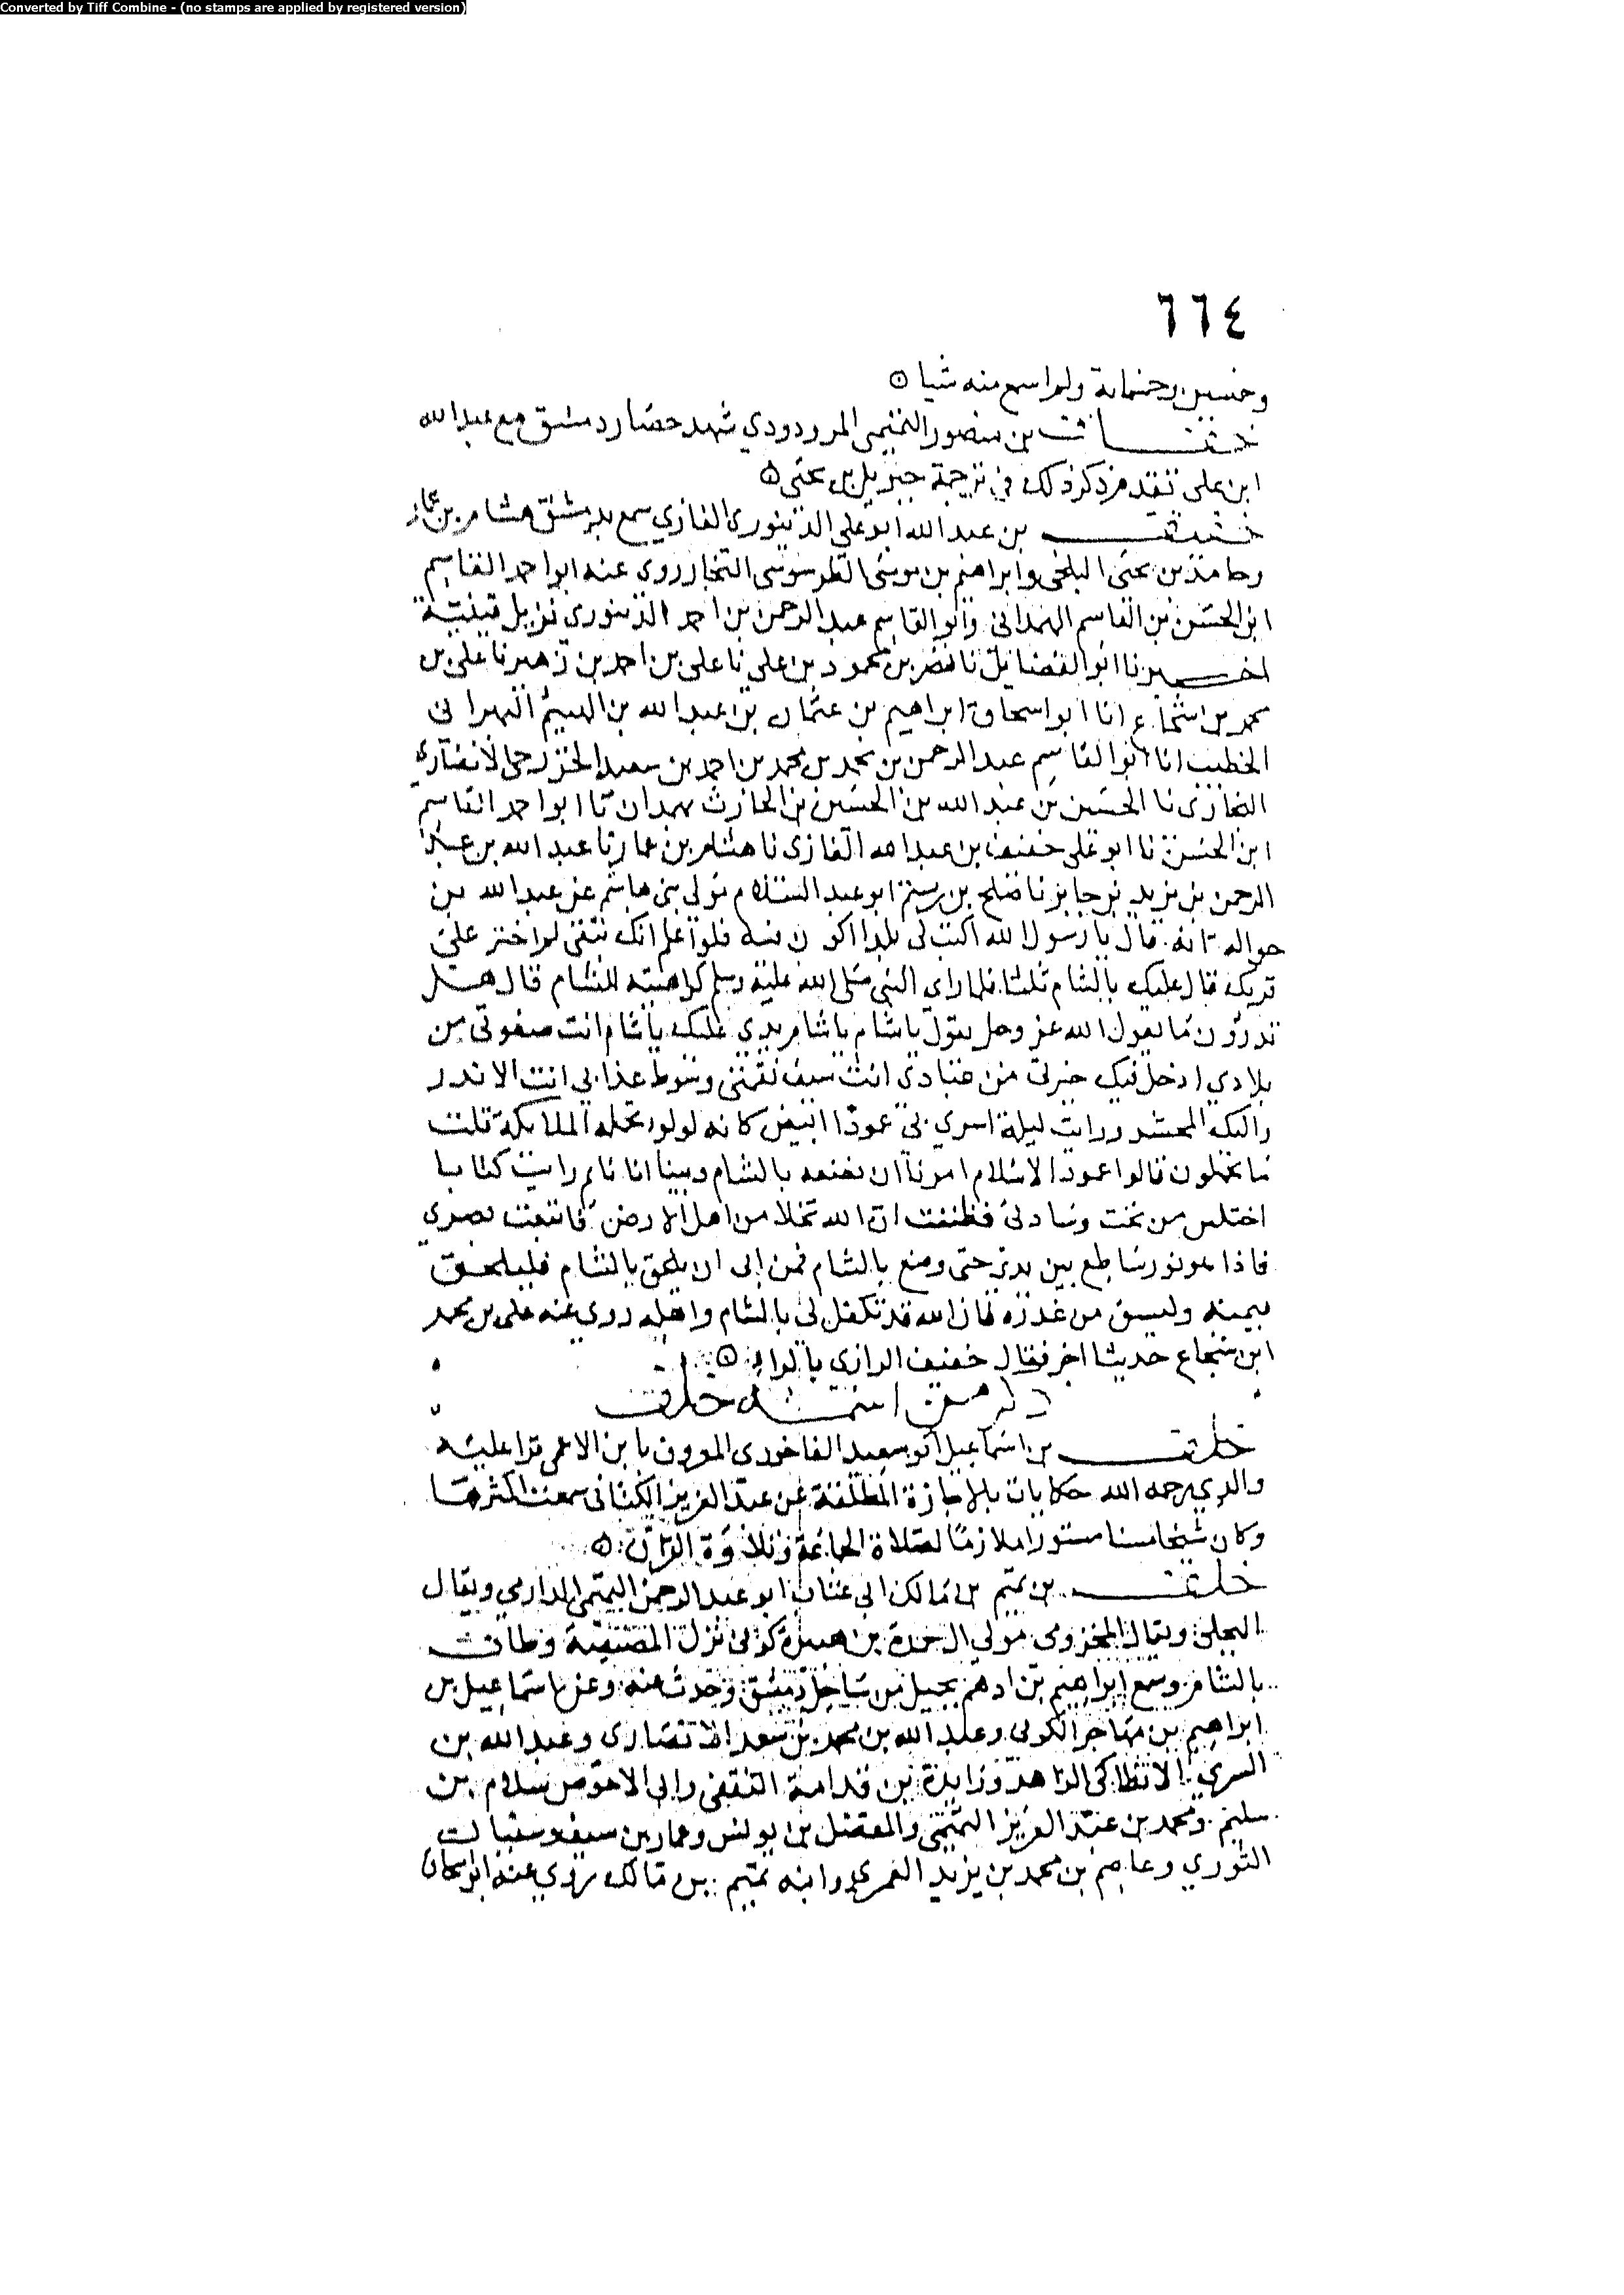 Converted by Tiff Combine - (no stamps are applied by registered version)
٦٦٤
وخمسين وخمسماية ولم اسمع منه شيا
بن منصور التميمي المروروذي شهد حصار دمشق مع عبد الله
ابن علي تقدم ذكر ذلك في ترجمة جبريل بن يحيى
خفيف بن عبد الله ابو علي الدينوري الغازي سمع بدمشق هشام بن عمار
وحامد بن يحيى البلخي وابراهيم بن موسى الطرسوسي النجار روى عنه ابو احمد القاسم
ابن الحسن بن القاسم الهمداني وابو القاسم عبد الرحمن بن احمد الدينوري نزيل
اخبرنا ابو الفضائل ناصر بن محمود بن علي نا علي بن احمد بن زهير نا علي بن
محمد بن شجاع انا ابو اسحاق ابراهيم بن عثمان بن عبد الله بن الهيثم
الخطيب انا ابو القاسم عبد الرحمن بن محمد بن محمد بن احمد بن سعيد الخزرجي الانصاري
نا الحسين بن عبد الله بن الحسين بن الحارث بهمدان نا ابو احمد القاسم
ابن الحسن نا ابو علي خفيف بن عبد الله الغازي نا هشام بن عمار نا عبد الله بن عبد
الرحمن بن يزيد بن جابر نا صالح بن رستم ابو عبد السلام مولى بني هاشم عن عبد الله بن
حوالة انه قال يا رسول الله اكتب لي بلدا اكون فيه فلو اعلم انك تبقى لم اختر على
قربك قال عليك بالشام ثلثا فلما راى النبي صلى الله عليه وسلم كراهيته للشام قال هل
تدرون ما يقول الله عز وجل يقول يا شام يا شام يدي عليك يا شام انت صفوتي من
بلادي ادخل فيك خيرتي من عبادي انت سيف نقمتي وسوط عذابي انت الاندر
واليك المحشر ورايت ليلة اسري بي عمودا ابيض كانه لولو تحمله الملايكة قلت
ما تحملون قالوا عمود الاسلام امرنا ان نضعه بالشام وبينا انا نايم رايت كتابا
اختلس من تحت وسادتي فظننت ان الله تخلا من اهل الارض فاتبعت بصري
فاذا هو نور ساطع بين يدي حتى وضع بالشام فمن ابى ان يلحق بالشام فليلحق
بيمنه وليسق من غدره فان الله قد تكفل لي بالشام واهله روى عنه علي بن محمد
ابن شجاع حديثا اخر فقال خفيف الرازي بالراء
ذكر من اسمه خلف
خلف بن اسماعيل ابو سعيد الفاخوري المعروف بابن الاعمى قرا عليه
والدي رحمه الله حكايات بالاجازة المطلقة عن عبد العزيز الكتاني سمعت اكثرها
وكان شيخا مسنا مستورا ملازما لصلاة الجماعة وتلاوة القرآن
خلف بن تميم بن مالك ابي عتاب ابو عبد الرحمن التيمي الدارمي ويقال
البجلي ويقال المخزومي مولى ال جعدة بن هبيرة كوفي نزل المصيصة وطاف
بالشام وسمع ابراهيم بن ادهم بجبيل من ساحل دمشق وحدث عنه وعن اسماعيل بن
ابراهيم بن مهاجر الكوفي وعبد الله بن محمد بن سعد الانصاري وعبد الله بن
السري الانطاكي الزاهد وزايدة بن قدامة الثقفي وابي الاحوص سلام بن
سليم ومحمد بن عبد العزيز التيمي والمفضل بن يونس وعمار بن سيف وسفيان
الثوري وعاصم بن محمد بن يزيد العمري وابنه تميم بن مالك روى عنه ابو اسحاق